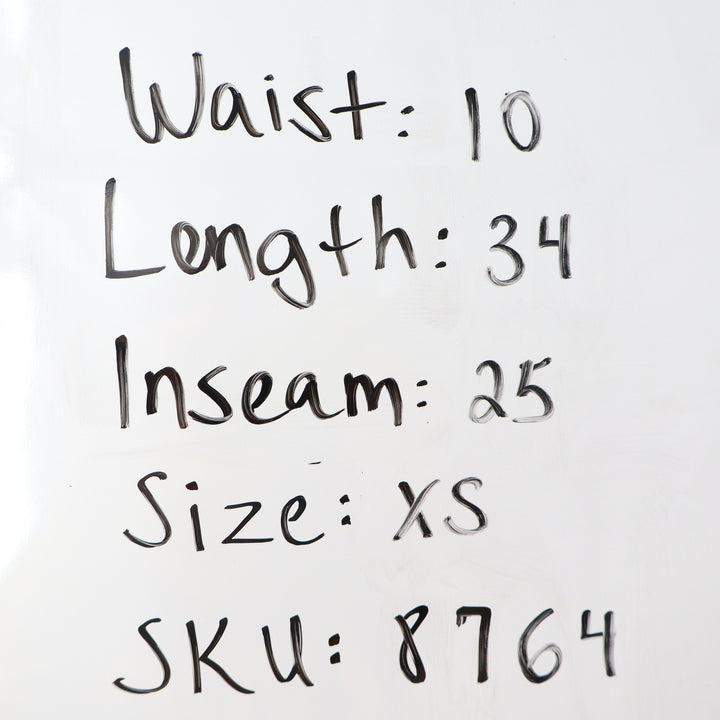 Waist: 10
Length: 34
Inseam: 25
Size: XS
SKU: 8764